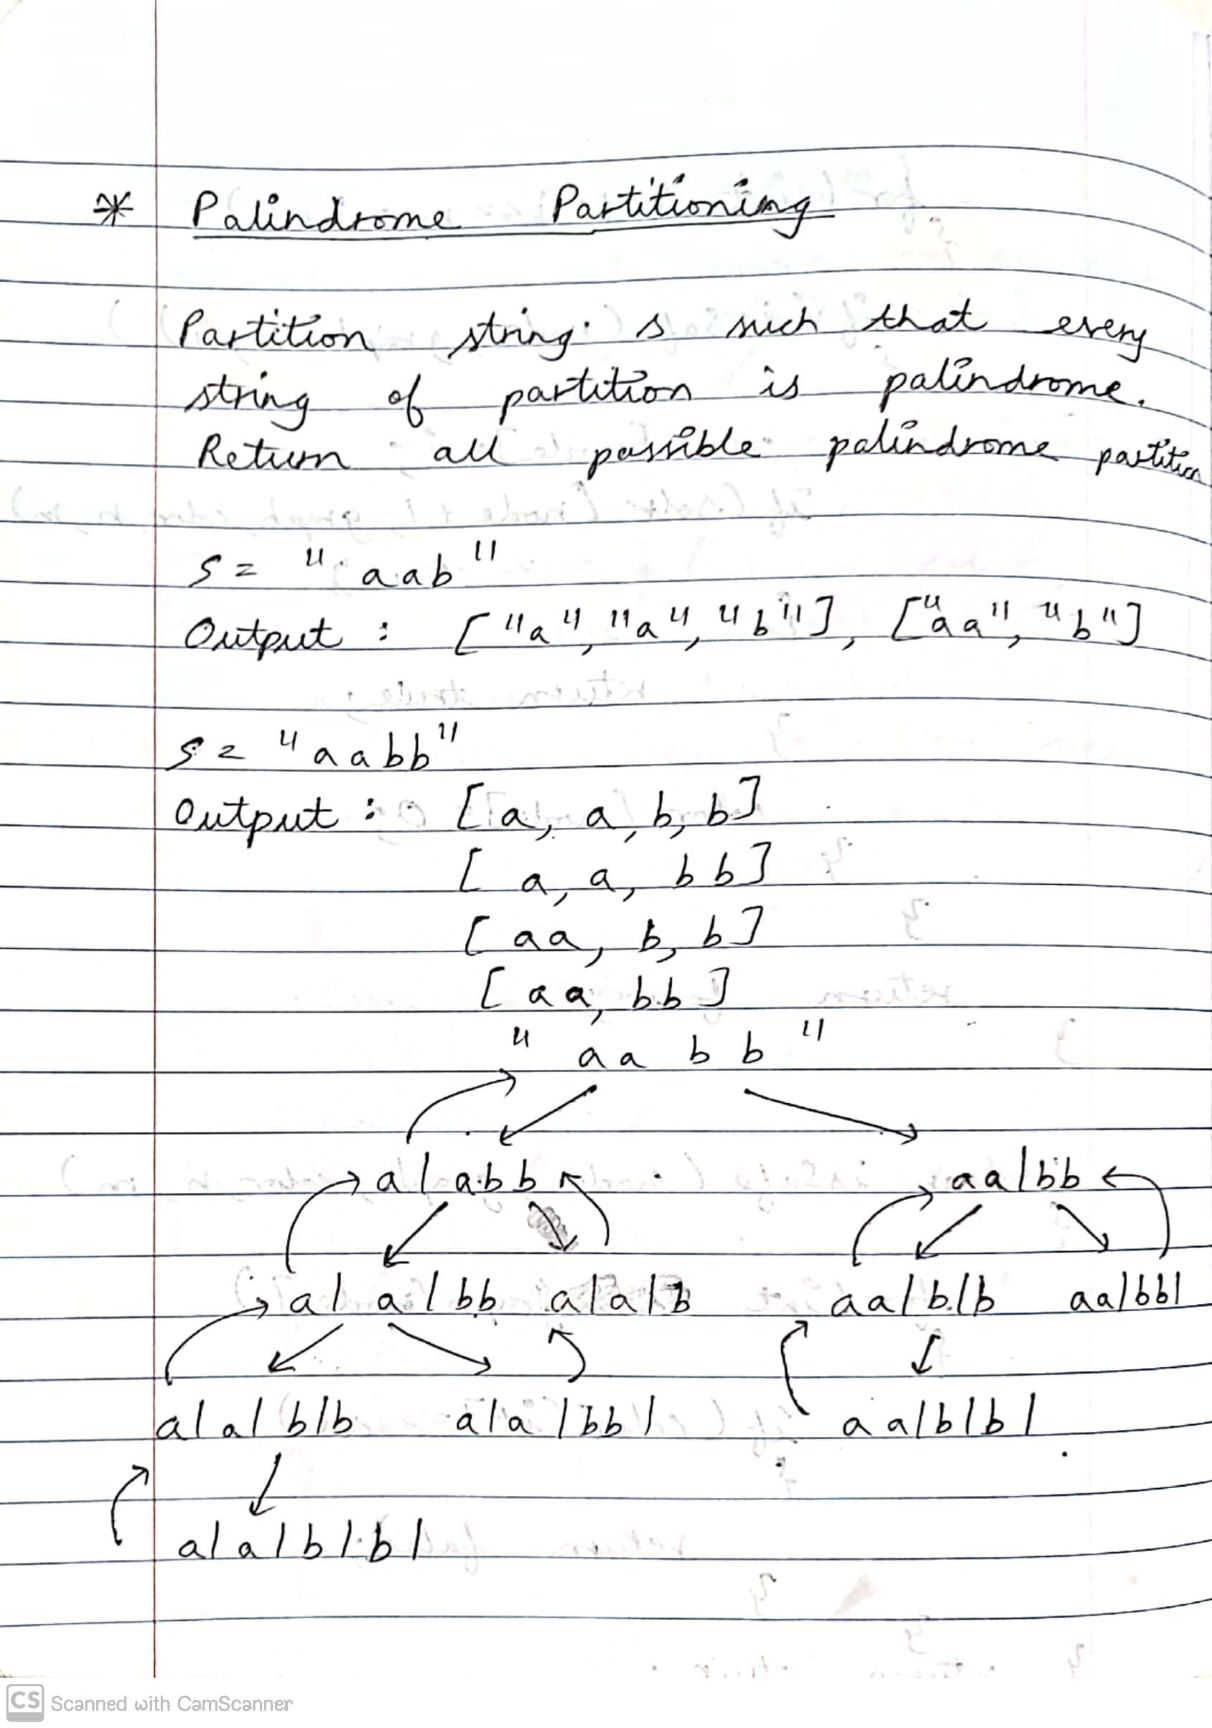 * Palindrome Partitioning
Partition string s such that every
string of partition is palindrome.
Return all possible palindrome partition
s = "aab"
Output : ["a", "a", "b"], ["aa", "b"]
s = "aabb"
Output : [a, a, b, b]
[a, a, bb]
[aa, b, b]
[aa, bb]
"aabb"
a|abb aa|bb
a|a|bb a|a|b aa|b|b aa|bb|
a|a|b|b a|a|bb| aa|b|b|
a|a|b|b|
CS Scanned with CamScanner